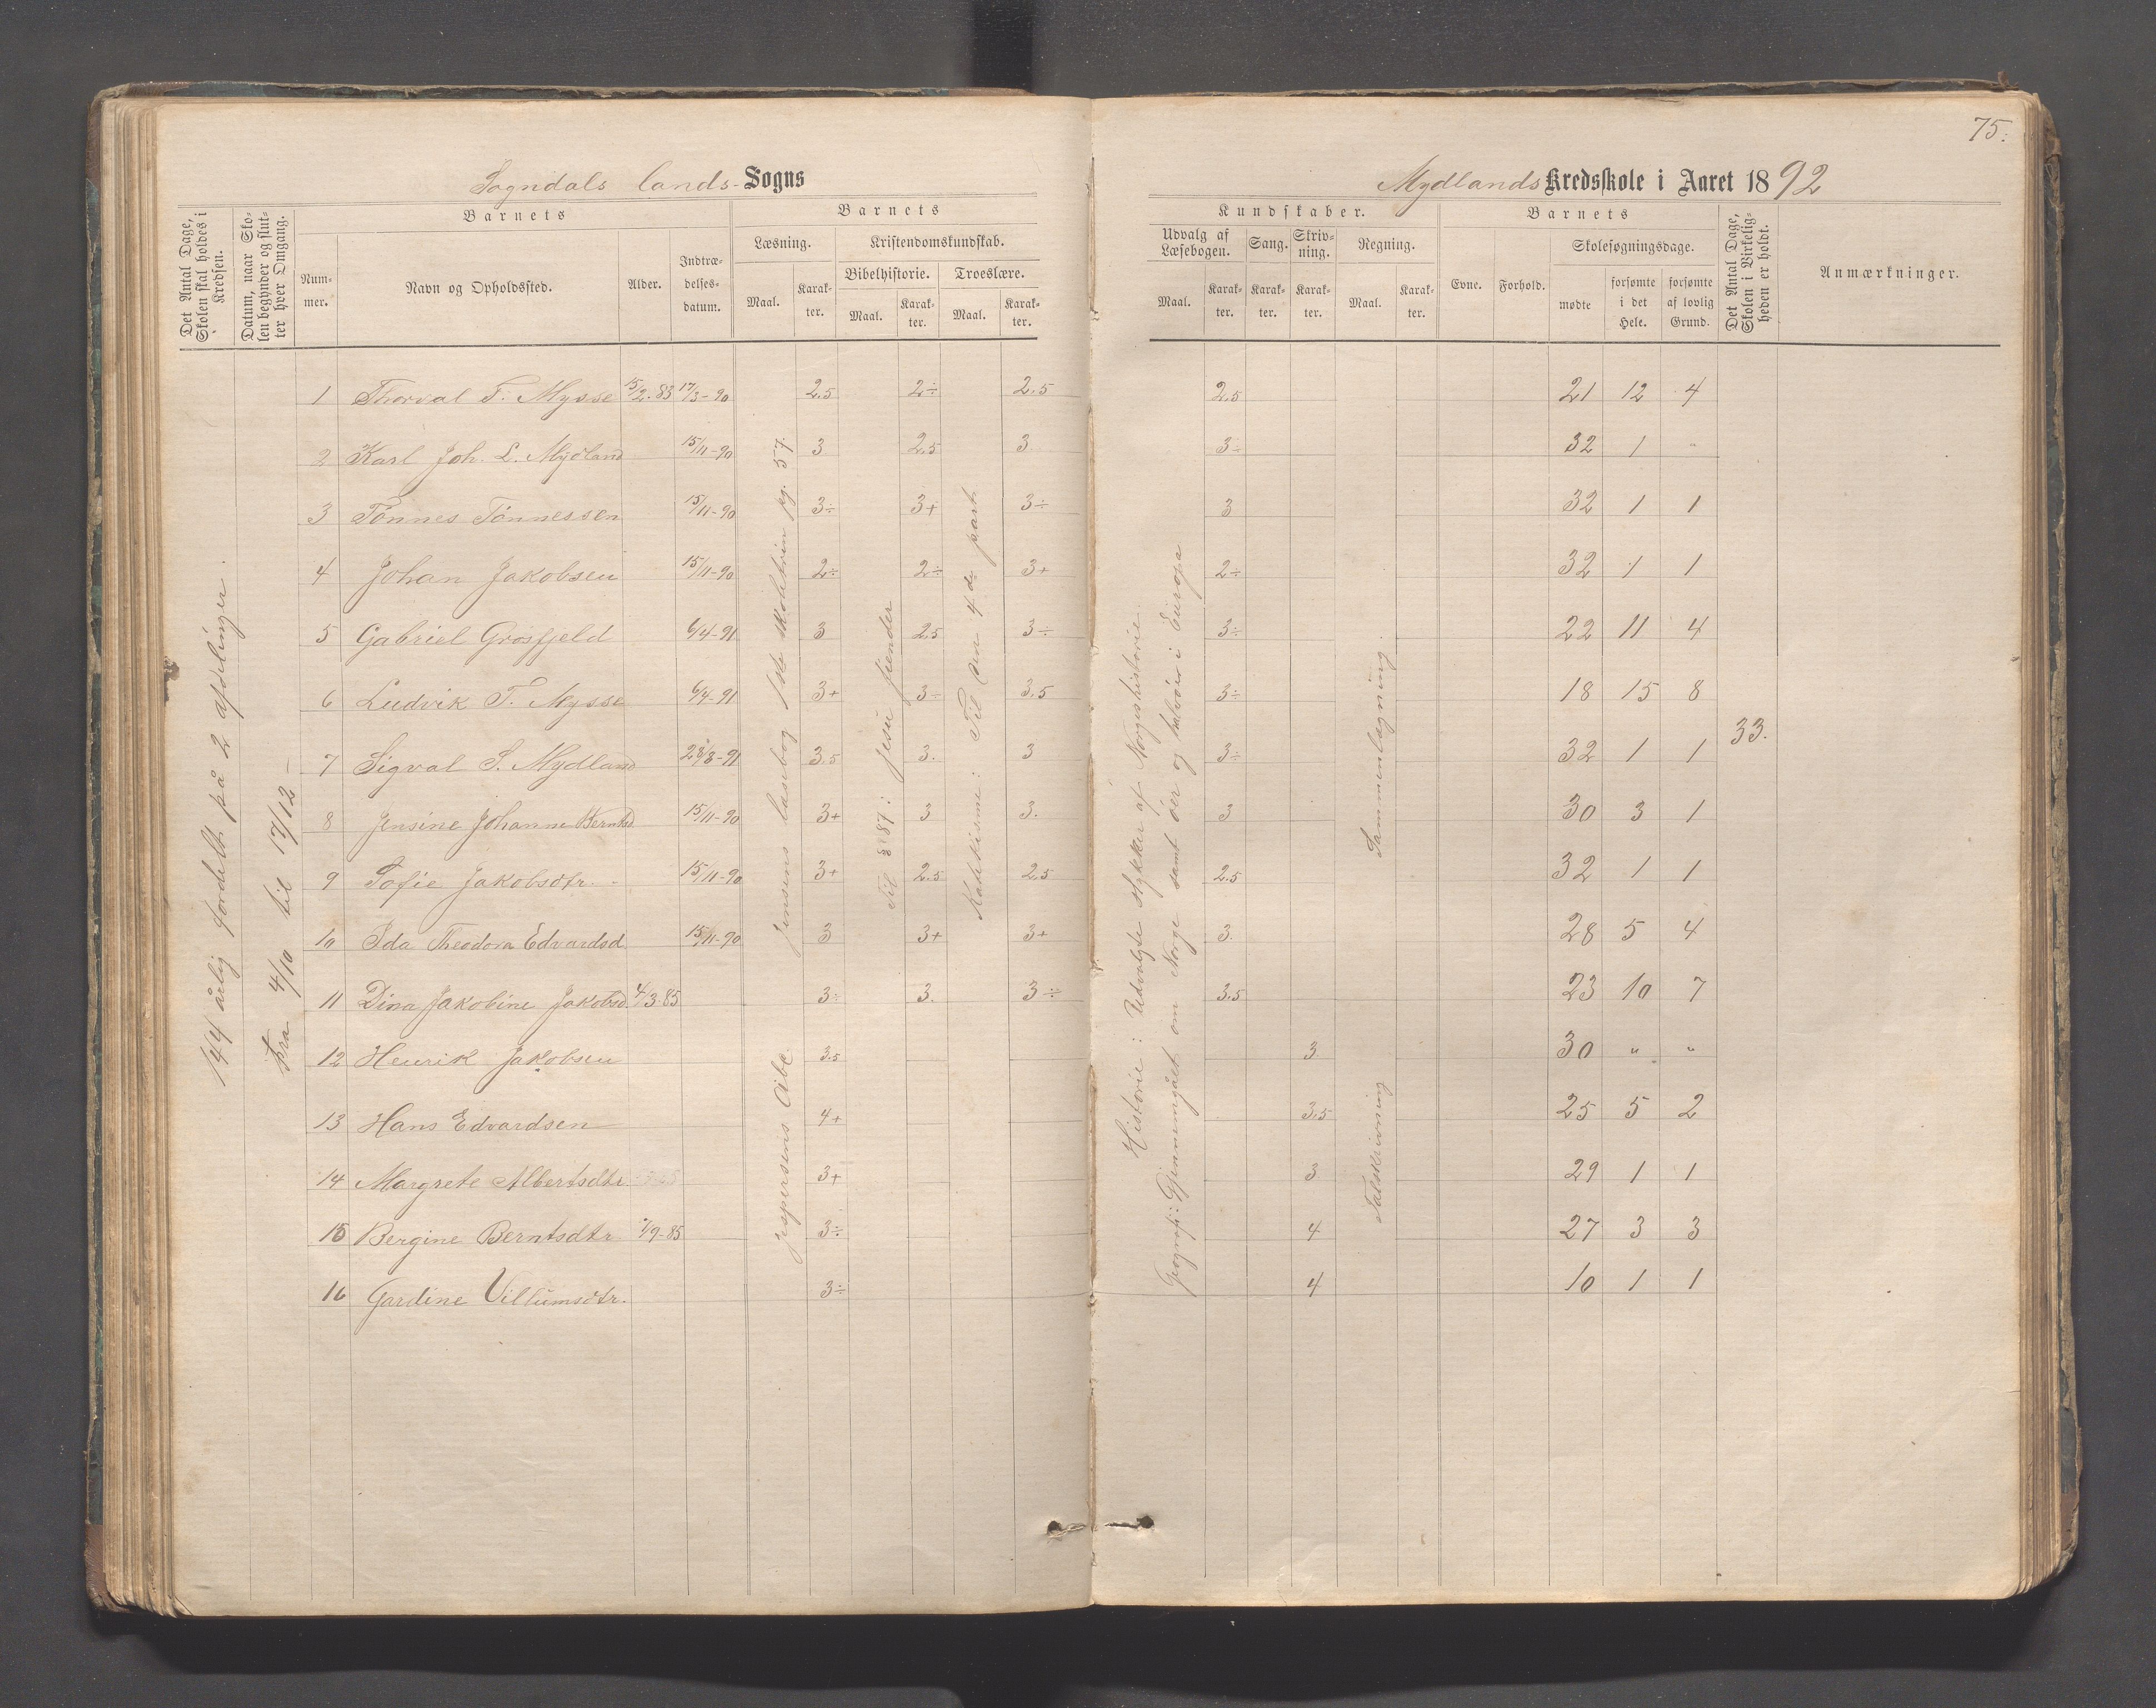 75.
Sogndals lands- Sogns
Mydlands Kredsskole i Aaret 1892
Det Antal Dage, Skolen skal holdes i Kredsen.
Datum, naar Skolen begynder og slutter hver Omgang.
Barnets
Nummer.
Navn og Opholdssted.
Alder.
Indtrædelsesdatum.
Barnets
Læsning.
Maal.
Karakter.
Kristendomskundskab.
Bibelhistorie.
Maal.
Karakter.
Troeslære.
Maal.
Karakter.
Kundskaber.
Udvalg af Læsebogen.
Maal.
Karakter.
Sang.
Karakter.
Skrivning.
Karakter.
Regning.
Maal.
Karakter.
Barnets
Evne.
Forhold.
Skolesøgningsdage.
mødte
forsømte i det Hele.
forsømte af lovlig Grund.
Det Antal Dage, Skolen i Virkeligheden er holdt.
Anmærkninger.
144 årlig fordelt på 2 afdelinger.
fra 4/10 til 17/12 –
1 Thorval T. Mysse 15/2-83 17/3-90 2.5 2÷ 2.5 2.5 21 12 4
2 Karl Joh. L. Mydland 15/11-90 3 2.5 3 3÷ 32 1 "
3 Tönnes Tönnessen 15/11-90 3÷ 3+ 3÷ 3 32 1 1
4 Johan Jakobsen 15/11-90 2÷ 2÷ 3+ 2÷ 32 1 1
5 Gabriel Grosfjeld 6/4-91 3 2.5 3÷ 3÷ 22 11 4
6 Ludvik T. Mysse 6/4-91 3+ 3÷ 3.5 3÷ 18 15 8
7 Sigval S. Mydland 23/8-91 3.5 3. 3 3÷ 32 1 1
33.
8 Jensine Johanne Berntsd 15/11-90 3+ 3 3. 3 30 3 1
9 Sofie Jakobsdtr. 15/11-90 3+ 2.5 2.5 2.5 32 1 1
10 Ida Theodora Edvardsd 15/11-90 3 3+ 3+ 3. 28 5 4
11 Dina Jakobine Jakobsd. 4/3-85 3÷ 3. 3÷ 3.5 23 10 7
12 Henrik Jakobsen 3.5 3 30 " "
13 Hans Edvardsen 4+ 3.5 25 5 2
14 Margrete Albertsdtr 3+ 3 29 1 1
15 Bergine Berntsdtr /9-85 3÷ 4 27 3 3
16 Gardine Villumsdtr. 3÷ 4 10 1 1
Jensens læsebog 1ste skoletrin pg. 57.
Jespersens Abc.
Til § 87: Jesu fiender
Katekisme: Til den 4de part.
Historie: Udvalgte stykker af Norgeshistorie.
Geografi: Gjennemgået om Norge samt öer og halvöer i Europa
Sammenlægning.
Talskrivning